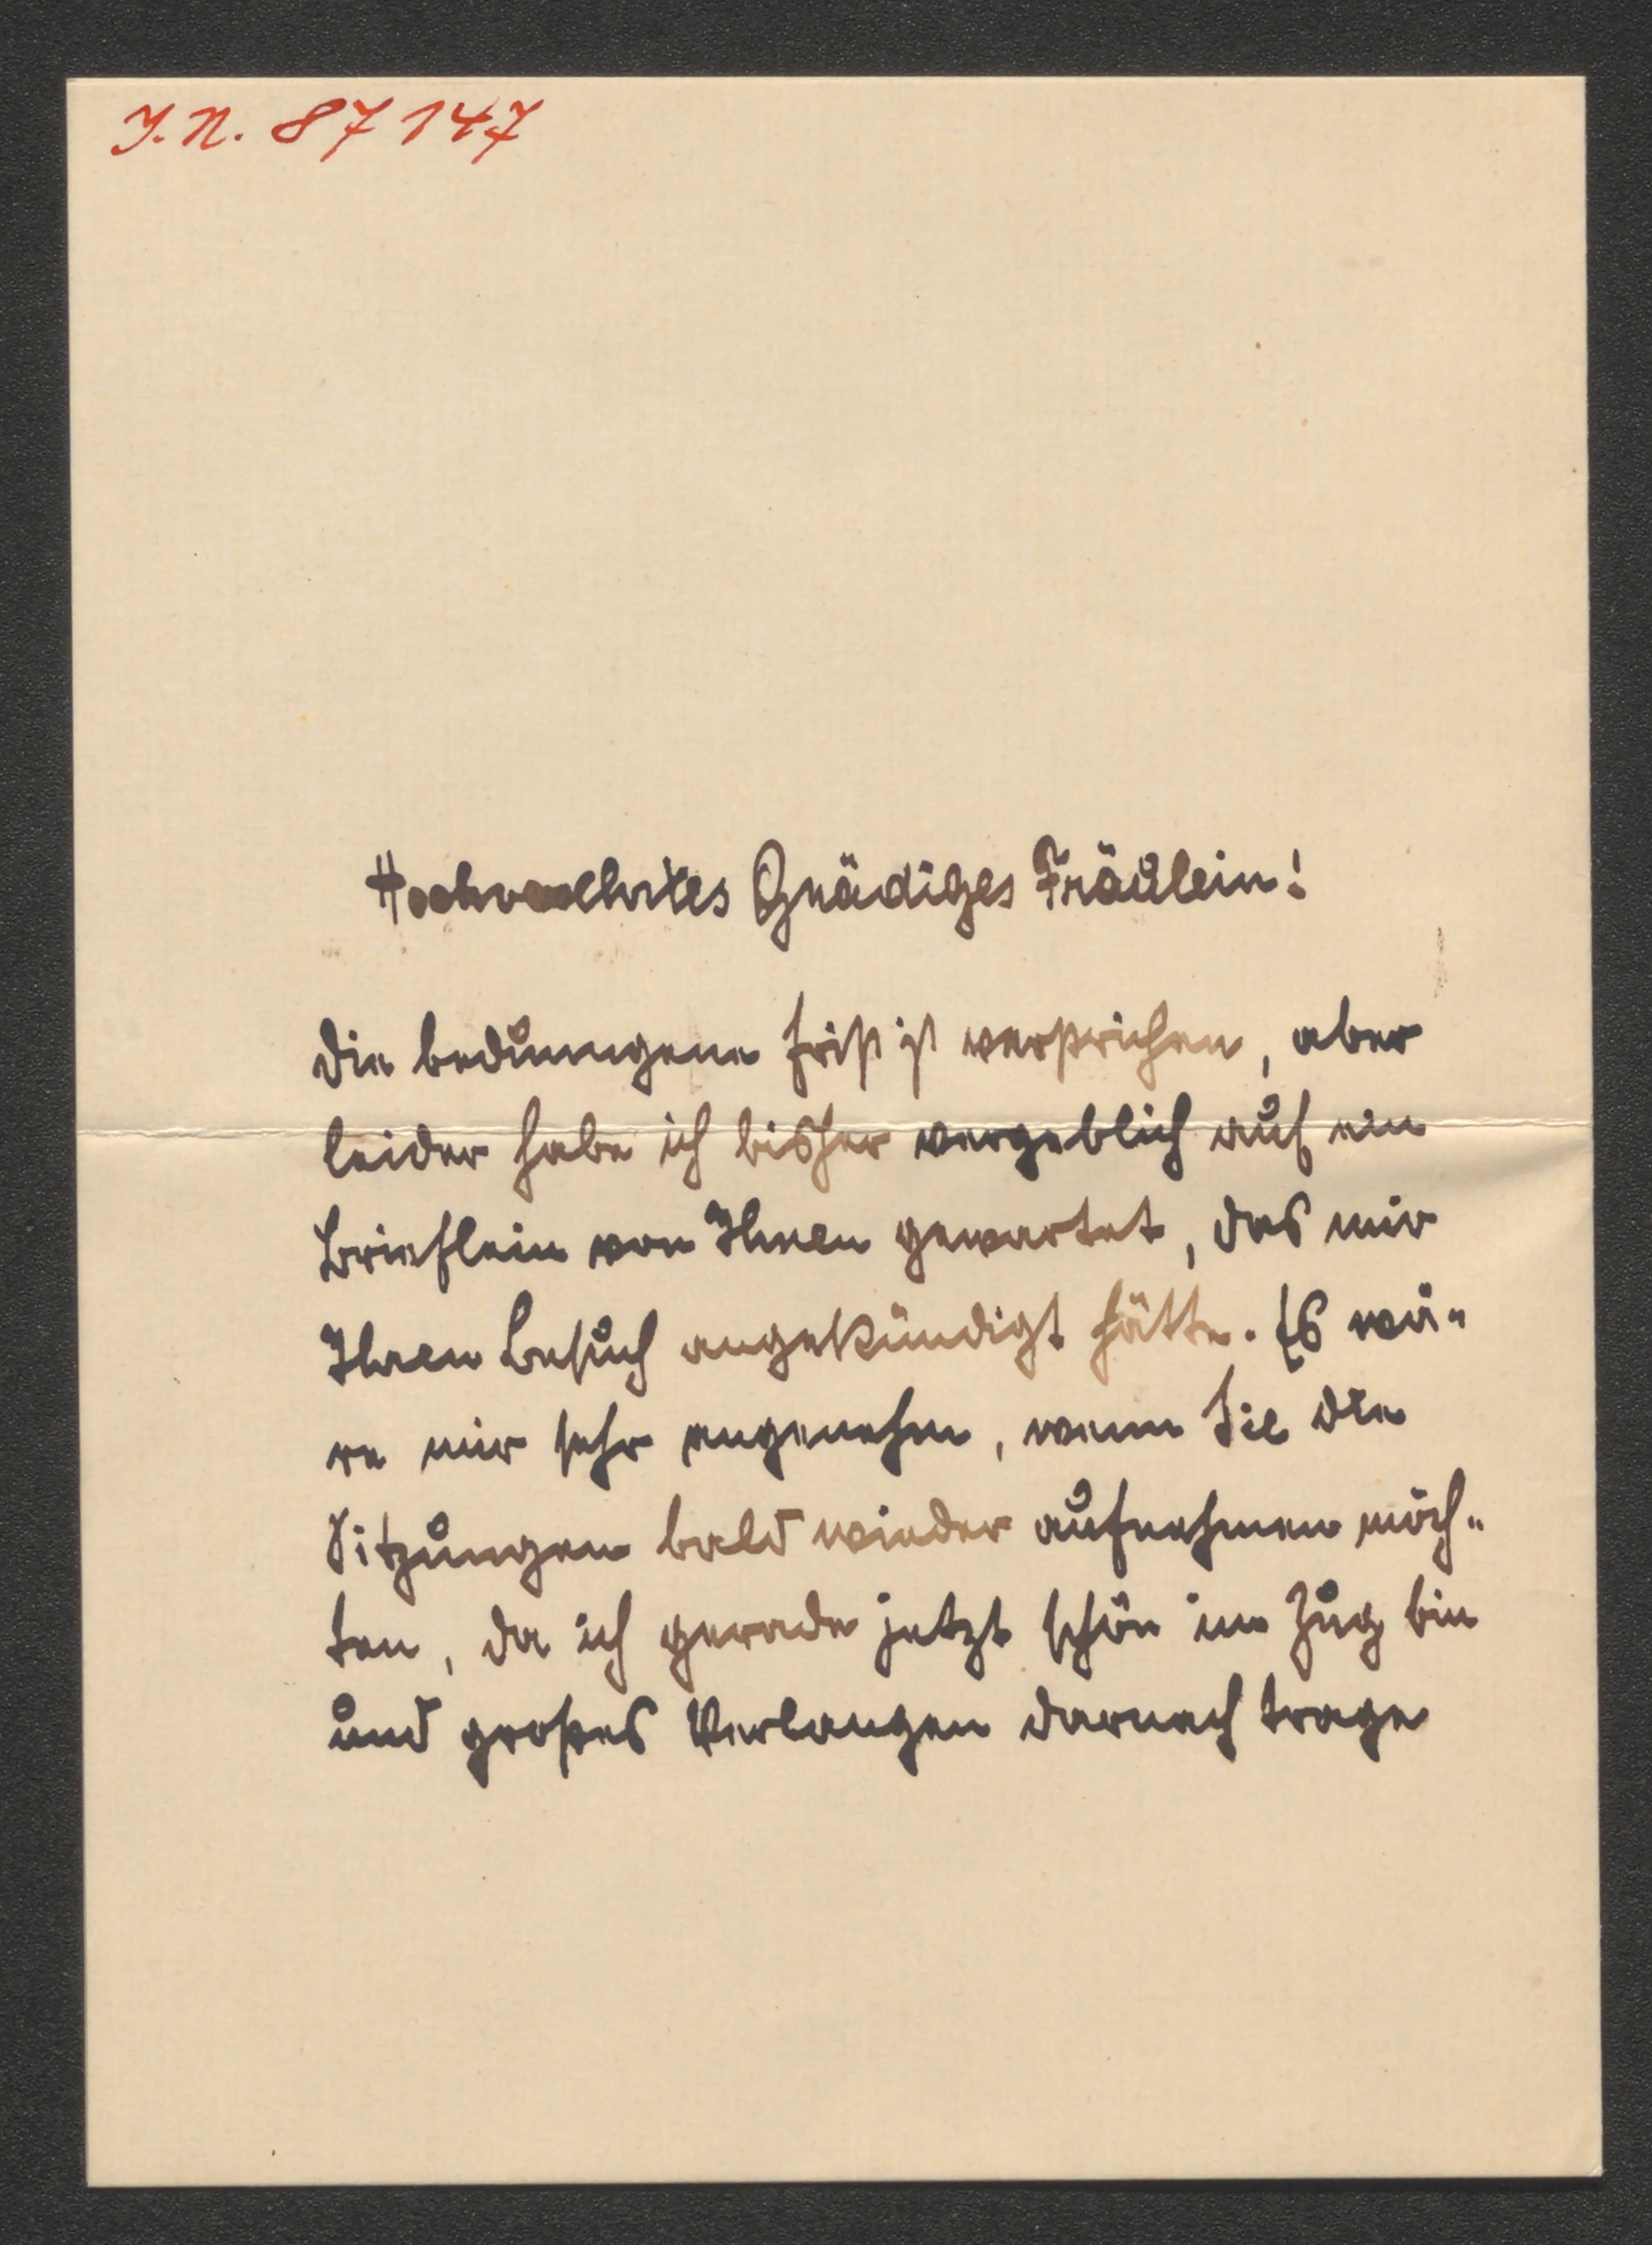 J.N. 87147
Hochverehrtes Gnädiges Fräulein!
die bedungene Frist ist verstrichen, aber
leider habe ich bisher vergeblich auf ein
Brieflein von Ihnen gewartet, das mir
Ihren Besuch angekündigt hätte. Es wä-
re mir sehr angenehm, wenn Sie die
Sitzungen bald wieder aufnehmen möch-
ten, da ich gerade jetzt schön im Zug bin
und großes Verlangen darnach trage